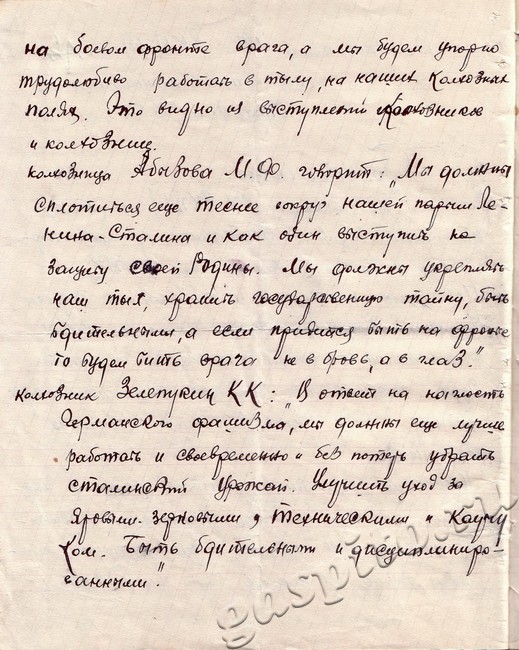 на боевом фронте врага, а мы будем упорно
трудолюбиво работать в тылу, на наших колхозных
полях. Это видно из выступлений колхозников
и колхозниц.
колхозница Абызова М.Ф. говорит: „Мы должны
сплотиться еще теснее вокруг нашей партии Ле-
нина-Сталина и как один выступить на
защиту своей Родины. Мы должны укреплять
наш тыл, хранить государственную тайну, быть
бдительными, а если придится быть на фронте
то будем бить врага не в бровь, а в глаз."
колхозник Зелепукин К К: „В ответ на наглость
Германского фашизма, мы должны еще лучше
работать и своевременно и без потерь убрать
сталинский урожай. Улучшить уход за
яровыми зерновыми, техническими и
Быть бдительными и дисциплиниро-
ванными."
gaspiao.ru